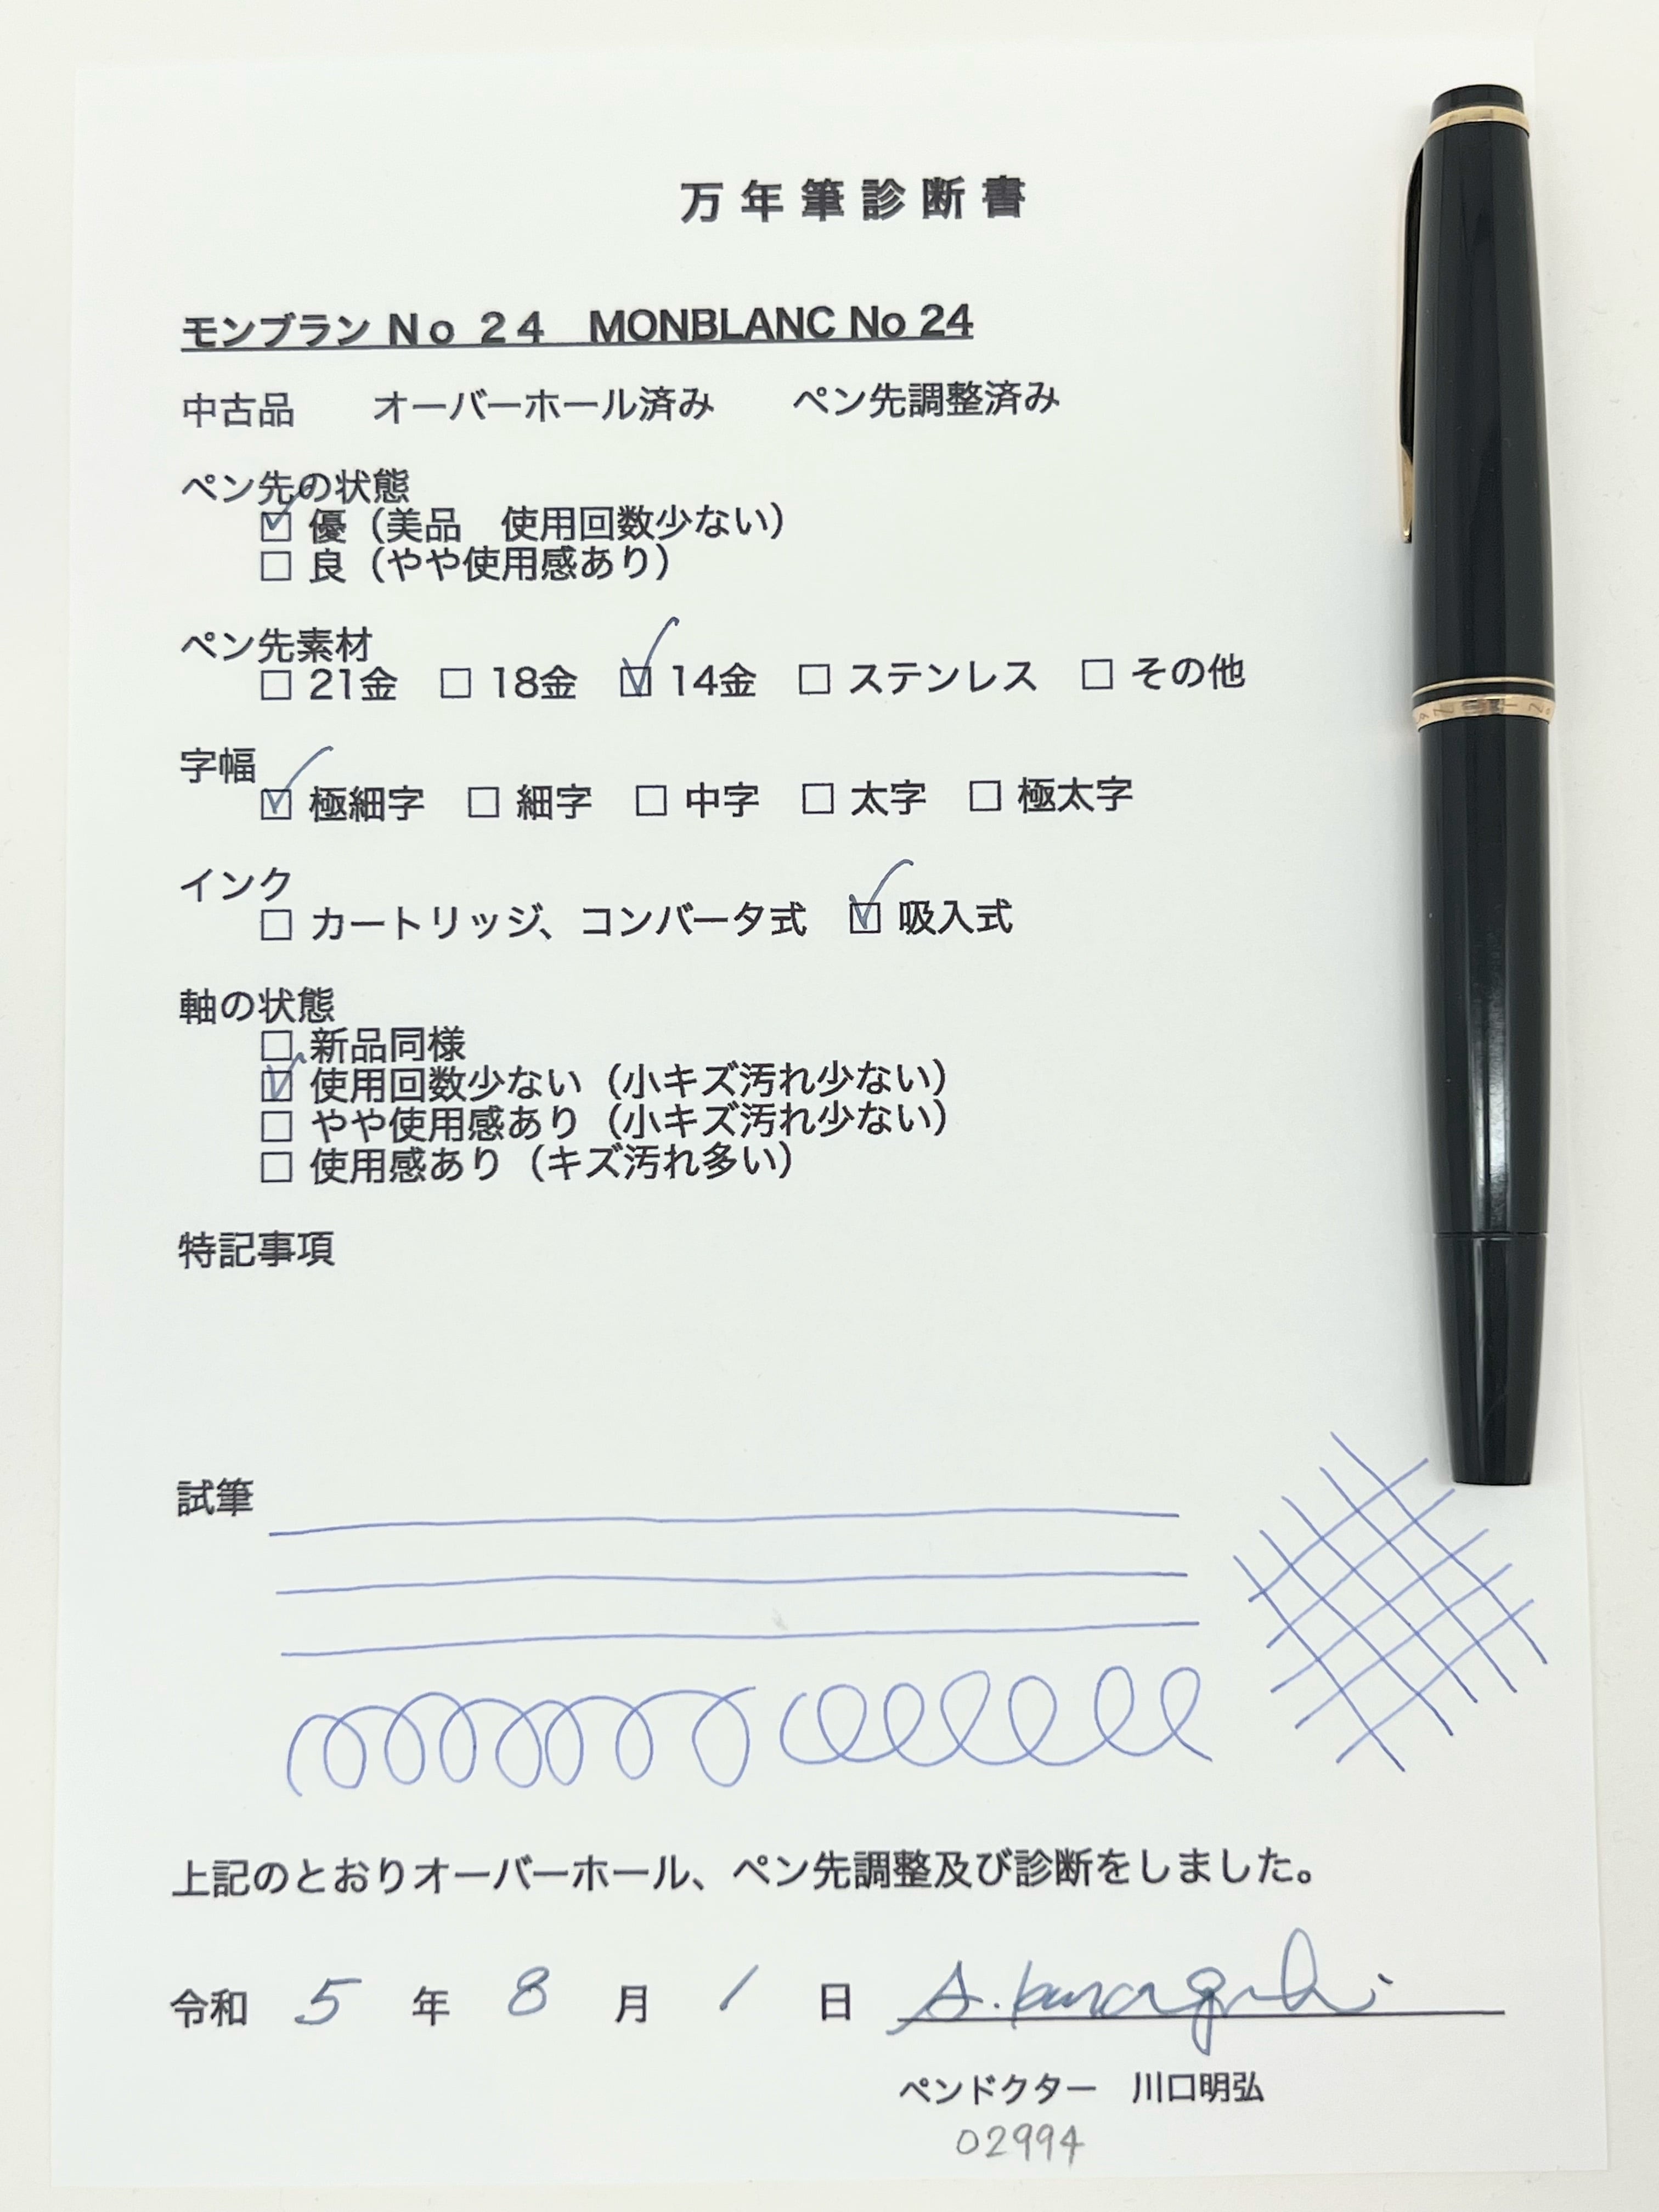 万年筆診断書
モンブラン No 24　MONBLANC No 24
中古品　　オーバーホール済み　　ペン先調整済み
ペン先の状態
☑ 優（美品　使用回数少ない）
☐ 良（やや使用感あり）
ペン先素材
☐ 21金　☐ 18金　☑ 14金　☐ ステンレス　☐ その他
字幅
☑ 極細字　☐ 細字　☐ 中字　☐ 太字　☐ 極太字
インク
☐ カートリッジ、コンバータ式　☑ 吸入式
軸の状態
☐ 新品同様
☑ 使用回数少ない（小キズ汚れ少ない）
☐ やや使用感あり（小キズ汚れ少ない）
☐ 使用感あり（キズ汚れ多い）
特記事項
試筆
上記のとおりオーバーホール、ペン先調整及び診断をしました。
令和 5 年 8 月 1 日
ペンドクター　川口明弘
02994